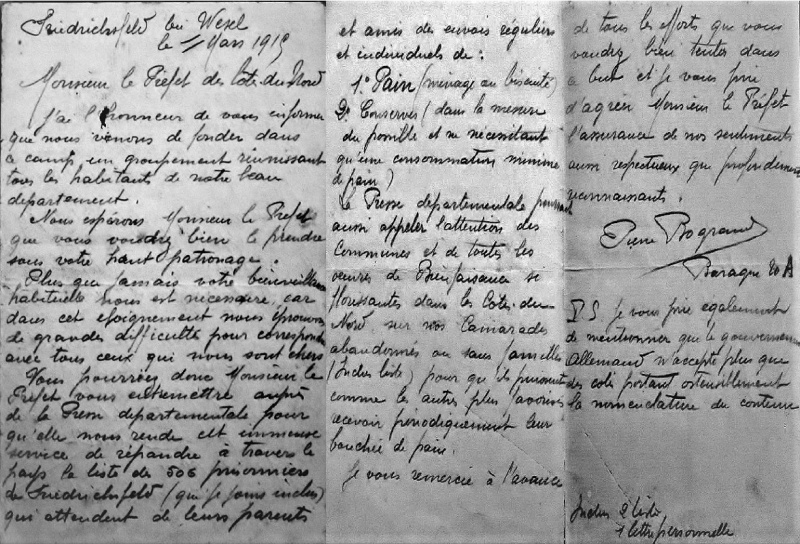 Friedrichsfeld bei Wesel
le Mars 1915
Monsieur le Préfet des Côtes-du-Nord
J'ai l'honneur de vous informer
que nous venons de fonder dans
ce camp un groupement réunissant
tous les habitants de notre beau
département.
Nous espérons Monsieur le Préfet
que vous voudrez bien le prendre
sous votre haut patronage.
Plus que jamais votre bienveillance
habituelle nous est nécessaire, car
dans cet éloignement nous éprouvons
de grandes difficultés pour correspondre
avec tous ceux qui nous sont chers
Vous pourriez donc Monsieur le
Préfet vous entremettre auprès
de la Presse départementale pour
qu'elle nous rende cet immense
service de répandre à travers le
pays la liste des 506 prisonniers
de Friedrichsfeld (que je joins inclus)
qui attendent de leurs parents
et amis des envois réguliers
et individuels de :
1° Pain (ménage ou biscuité)
2° Conserves (dans la mesure
du possible et ne nécessitant
qu'une consommation minime
de pain)
La Presse départementale pourrait
aussi appeler l'attention des
Communes et de toutes les
œuvres de Bienfaisance si
florissantes dans les Côtes-du-
Nord sur nos Camarades
abandonnés ou sans familles
(Inclus liste) pour qu'ils puissent
comme les autres plus favorisés
recevoir périodiquement leur
bouchée de pain.
Je vous remercie à l'avance
de tous les efforts que vous
voudrez bien tenter dans
ce but et je vous prie
d'agréer Monsieur le Préfet
l'assurance de nos sentiments
aussi respectueux que profondément
reconnaissants.
Pierre Bogrand
Baraque 20 A
P.S. Je vous prie également
de mentionner que le gouvernement
Allemand n'accepte plus que
des colis portant ostensiblement
la nomenclature du contenu
Inclus 2 listes
1 lettre personnelle